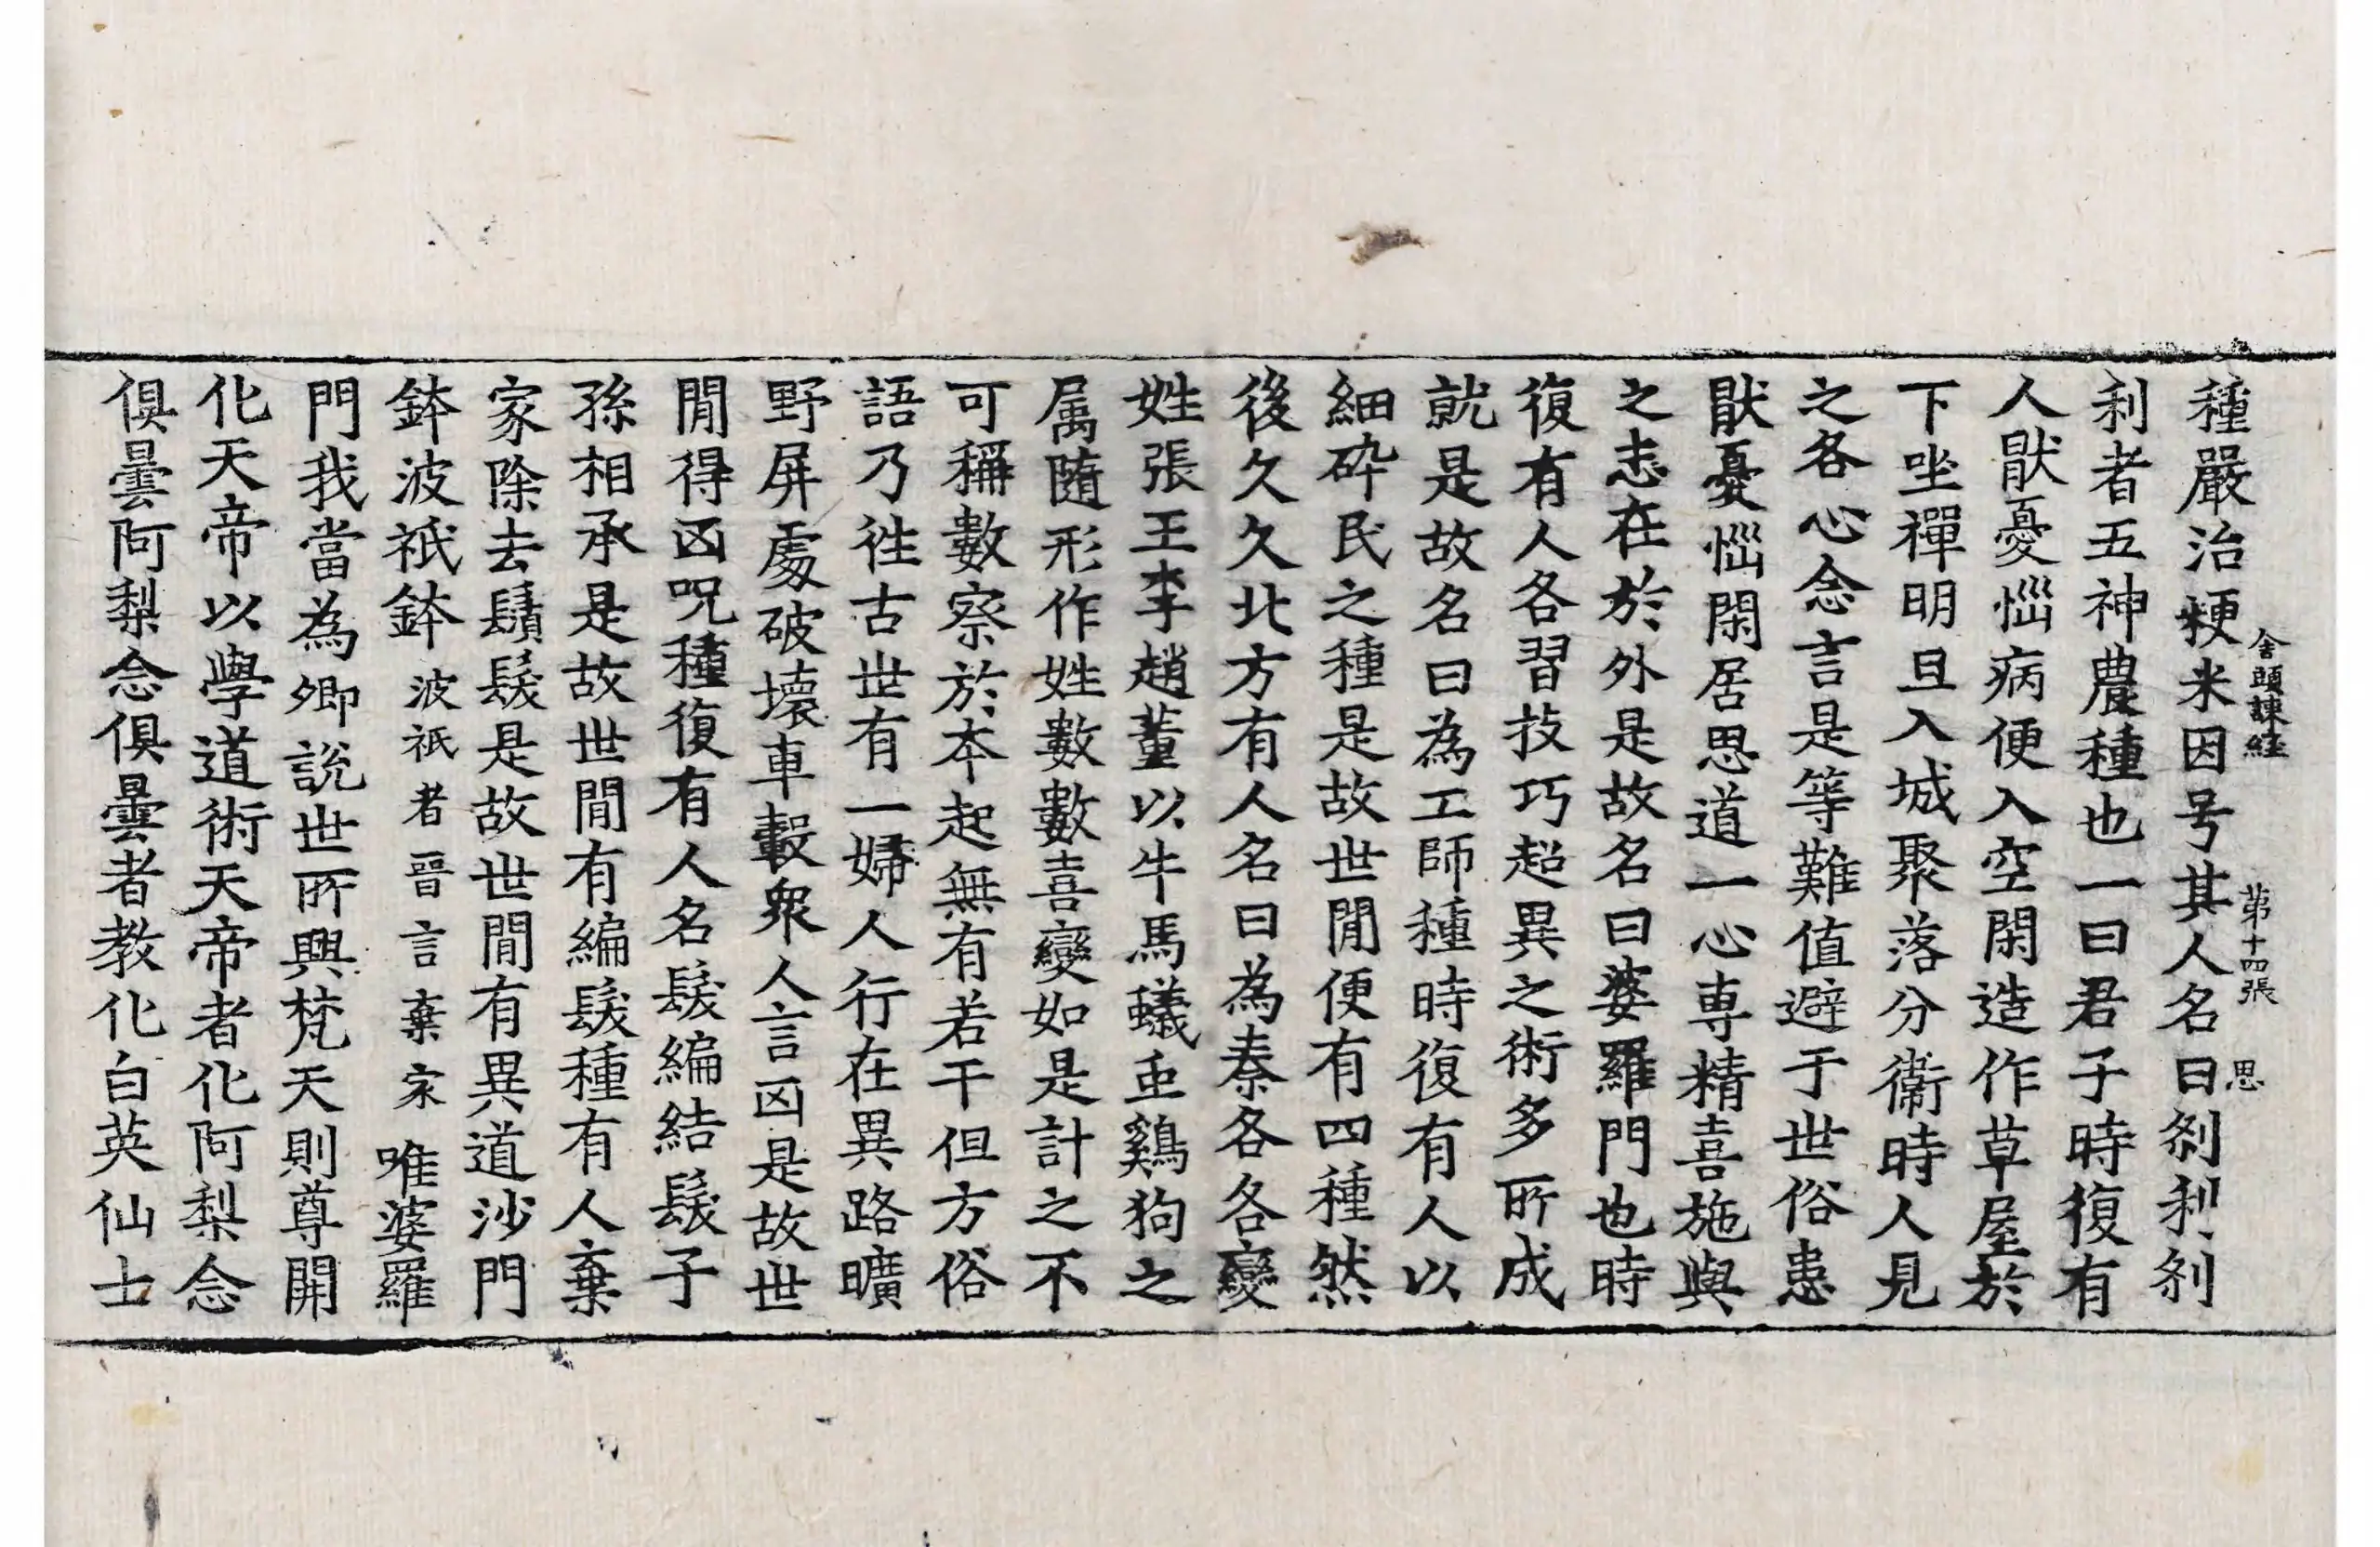 種嚴治粳米因号其人名曰刹利刹
舍頭諫經　第十四張　思
利者五神農種也一曰君子時復有
人猒憂惱病便入空閑造作草屋於
下坐禪明旦入城聚落分衞時人見
之各心念言是等難值避于世俗恚
猒憂惱閑居思道一心専精喜施與
之志在於外是故名曰婆羅門也時
復有人各習技巧超異之術多所成
就是故名曰為工師種時復有人以
細碎民之種是故世閒便有四種然
後久久北方有人名曰為秦各各變
姓張王李趙董以牛馬蟻䖝鷄狗之
属隨形作姓數數喜變如是計之不
可稱數察於本起無有若干但方俗
語乃徃古世有一婦人行在異路曠
野屏處破壞車轂衆人言凶是故世
閒得凶呪種復有人名髮編結髮子
孫相承是故世閒有編髮種有人棄
家除去鬚髮是故世閒有異道沙門
鉢波祇鉢波祇者晉言棄家唯婆羅
門我當為卿說世所興梵天則尊開
化天帝以學道術天帝者化阿梨念
俱曇阿梨念俱曇者教化白英仙士